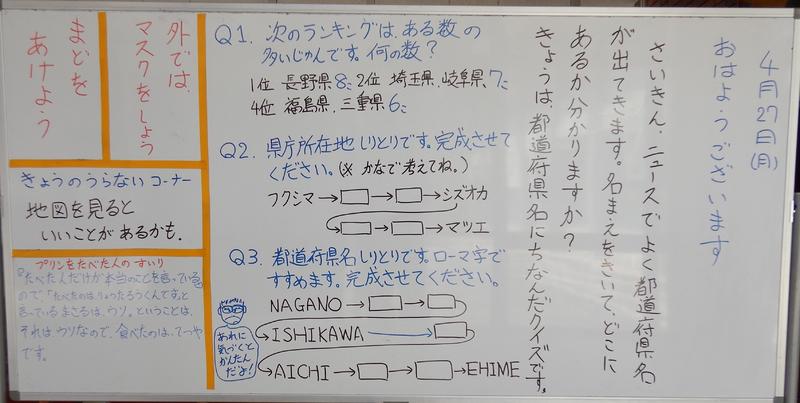 4月27日(月)
おはようございます
さいきん、ニュースでよく都道府県名
が出てきます。名まえをきいて、どこに
あるか分かりますか？
きょうは、都道府県名にちなんだクイズです。
Q1. 次のランキングは、ある数の
多いじゅんです。何の数？
1位 長野県8こ 2位 埼玉県、岐阜県、7こ
4位 福島県、三重県6こ
Q2. 県庁所在地しりとりです。完成させて
ください。(※ かなで考えてね。)
フクシマ→□→□→シズオカ
→□→□→マツエ
Q3. 都道府県名しりとりです。ローマ字で
すすめます。完成させてください。
NAGANO→□→□
→ISHIKAWA→□
→AICHI→□→□→EHIME
あれに
気づくと
かんたん
だよ！
外では、
マスクをしよう
まどを
あけよう
きょうのうらないコーナー
地図を見ると
いいことがあるかも。
プリンをたべた人のすいり
『たべた人だけが本当のことを言っている』
ので、「たべたのは、りょうたろうくんです。」と
言っているまさるは、ウソ。ということは、
それは、ウソなので、食べたのは、てつや
です。